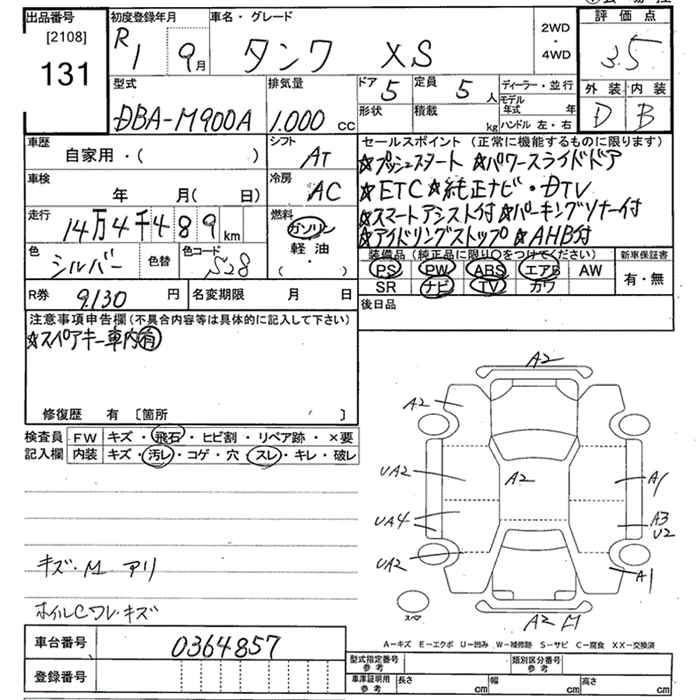 出品番号 初度登録年月 車名・グレード 2WD・4WD 評価点
[2108] 131 R1 9月 タンク XS 3.5
型式 排気量 ドア 5 定員 5人 ディーラー・並行 外装 内装
DBA-M900A 1.000 cc 形状 積載 kg モデル年式 年 ハンドル 左・右 D B
車歴 自家用・( ) シフト AT セールスポイント (正常に機能するものに限ります)
☆プッシュスタート ☆パワースライドドア
車検 年 月( 日) 冷房 AC ☆ETC ☆純正ナビ・DTV
走行 14万4千489km 燃料 ガソリン 軽油 ( ・ ) ☆スマートアシスト付 ☆パーキングソナー付
☆アイドリングストップ ☆AHB付
色 シルバー 色替 色コード S28 装備品 (純正品に限り○をつけてください) 新車保証書
PS PW ABS エアB AW 有・無
R券 9,130 円 名変期限 月 日 SR ナビ TV カワ
注意事項申告欄 (不具合内容等は具体的に記入して下さい) 後日品
☆スペアキー車内有
修復歴 有 [箇所 ]
検査員 FW キズ・飛石・ヒビ割・リペア跡・×要
記入欄 内装 キズ・汚レ・コゲ・穴・スレ・キレ・破レ
A2
A2
UA2 A2 A1
UA4 A3
U2
UA2 A1
キズ・M アリ
ホイルCワレ・キズ
スペア A2
A-キズ E-エクボ U-凹み W-補修跡 S-サビ C-腐食 XX-交換済
車台番号 0364857
登録番号 型式指定番号 参考 類別区分番号 参考
車庫証明用 参考 長さ cm 幅 cm 高さ cm